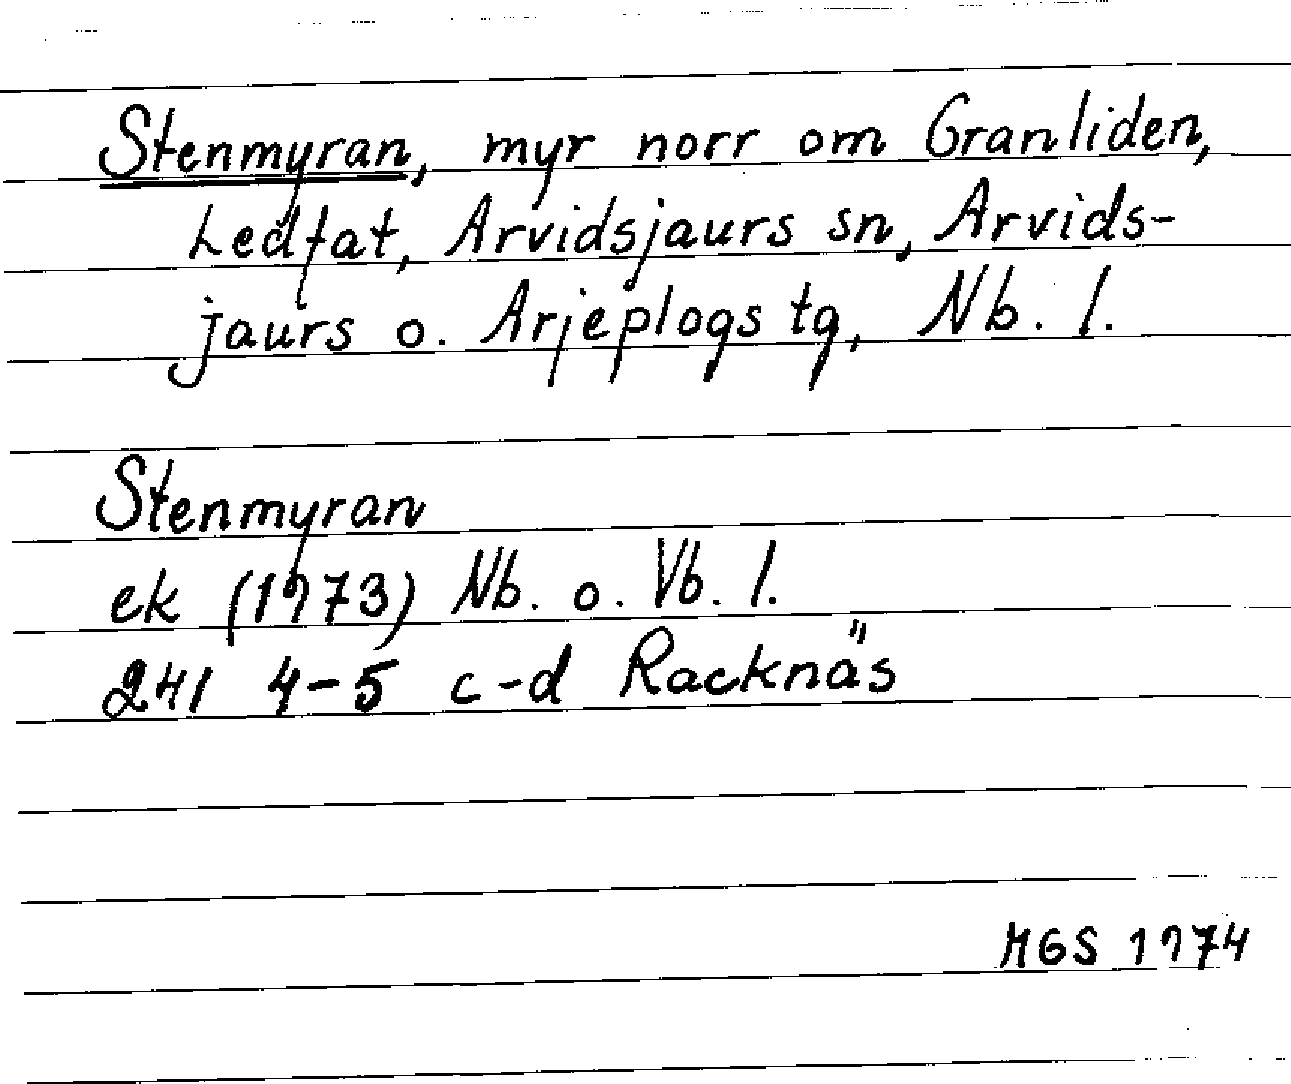 Stenmyran, myr norr om Granliden,
Ledfat, Arvidsjaurs sn, Arvids-
jaurs o. Arjeplogs tg, Nb. l.
Stenmyran
ek (1973) Nb. o. Vb. l.
241 4-5 c-d Racknäs
MGS 1974